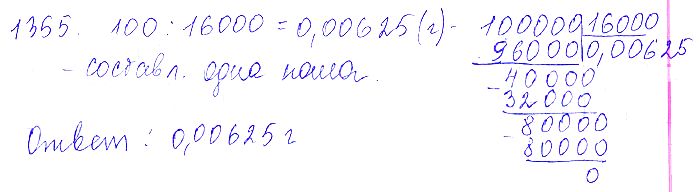 1355. 100 : 16000 = 0,00625 (г) -
- составл. одна
Ответ: 0,00625 г
100000 16000
96000 0,00625
- 40000
32000
- 80000
80000
0